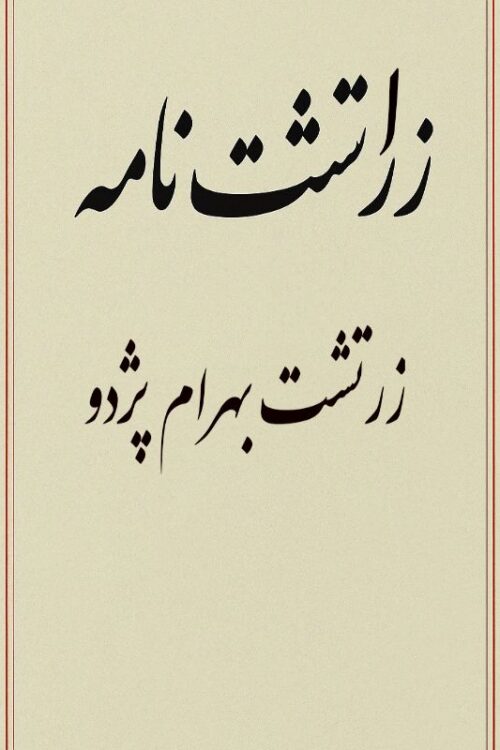 زراتشت نامه
زرتشت بهرام پژدو